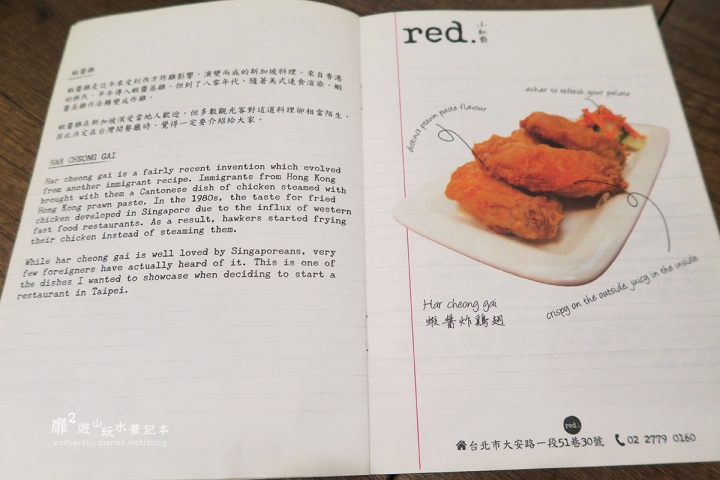 蝦醬雞
蝦醬雞是近年來受到西方炸雞影響，演變而成的新加坡料理。來自香港
的移民，早年傳入蝦醬蒸雞。但到了八零年代，隨著美式速食渲染，蝦
醬蒸雞作法轉變成炸雞。
蝦醬雞在新加坡深受當地人歡迎，但多數觀光客對這道料理卻相當陌生，
因此決定在台灣開餐廳時，覺得一定要介紹給大家。
HAR CHEONG GAI
Har cheong gai is a fairly recent invention which evolved
from another immigrant recipe. Immigrants from Hong Kong
brought with them a Cantonese dish of chicken steamed with
Hong Kong prawn paste. In the 1980s, the taste for fried
chicken developed in Singapore due to the influx of western
fast food restaurants. As a result, hawkers started frying
their chicken instead of steaming them.
While har cheong gai is well loved by Singaporeans, very
few foreigners have actually heard of it. This is one of
the dishes I wanted to showcase when deciding to start a
restaurant in Taipei.
靡2遊山玩水筆記本
estherslu.pixnet.net/blog
red.
小紅點
achar to refresh your palate
distinct prawn paste flavour
crispy on the outside, juicy in the inside
Har cheong gai
蝦醬炸雞翅
red.
台北市大安路一段51巷30號 02 2779 0160